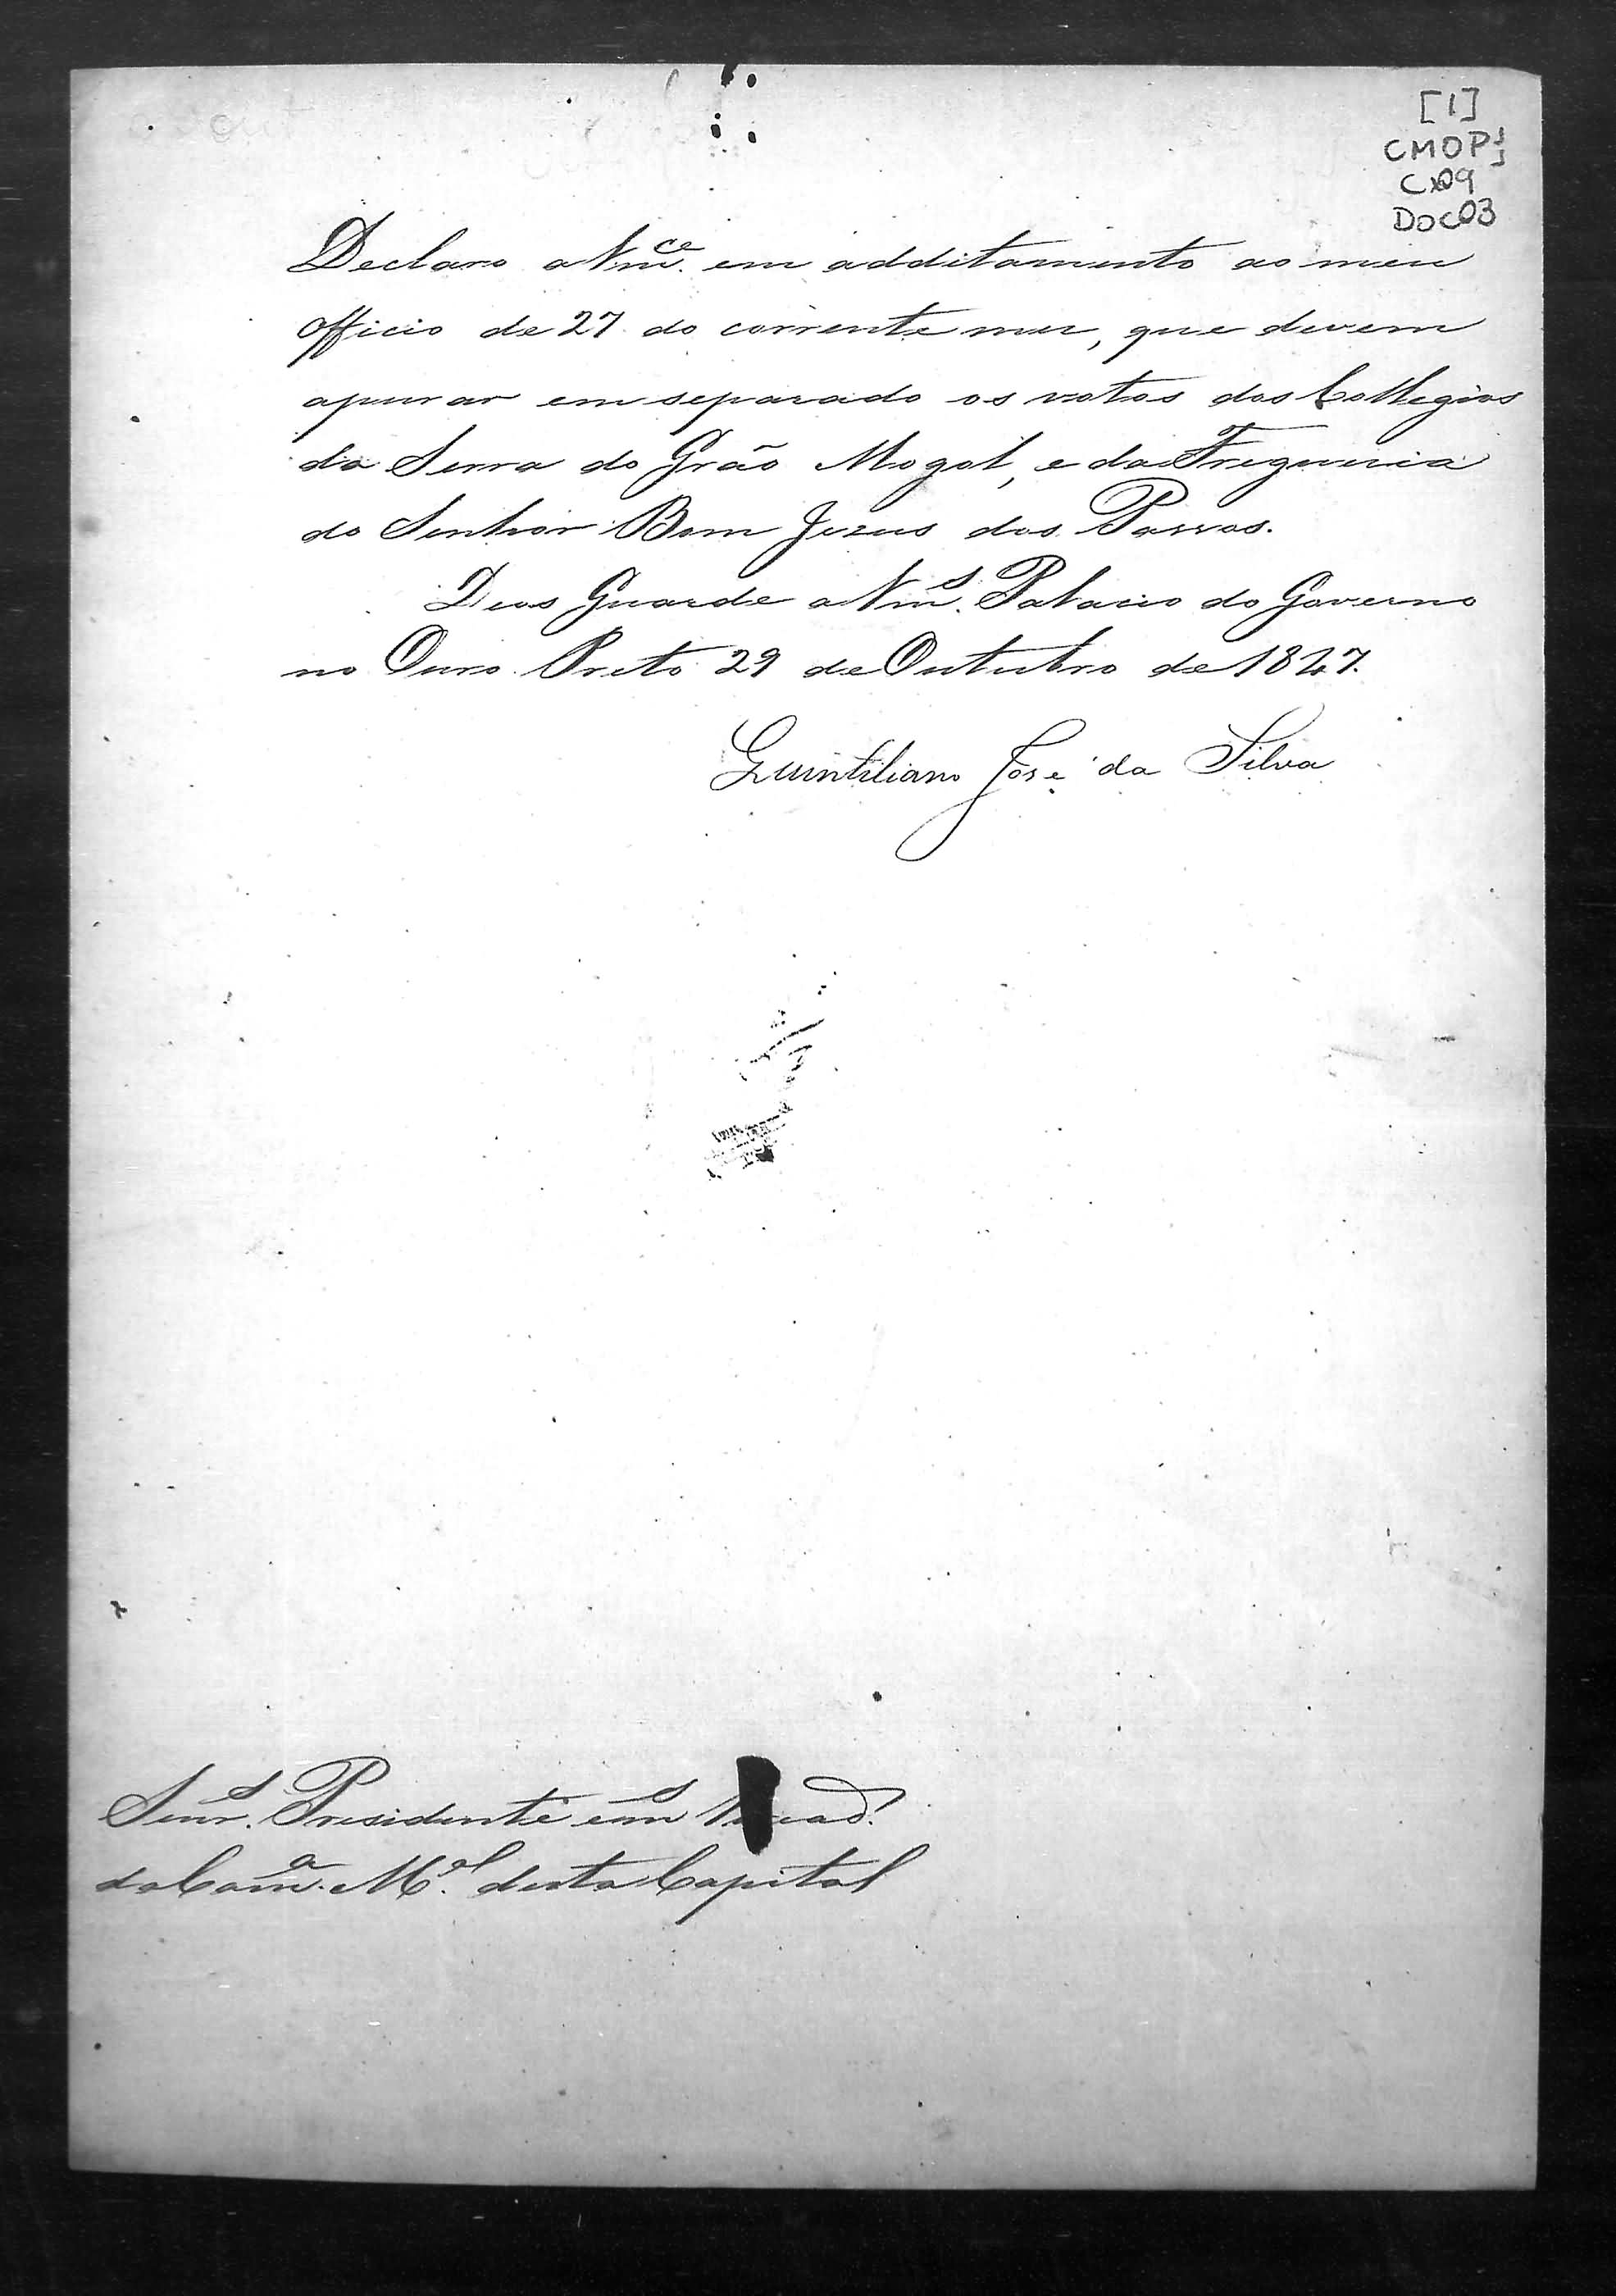 [1]
CMOP
CX09
DOC03
Declaro a Vm.ce em additamento ao meu
officio de 27 do corrente mez, que devem
apurar em separado os votos dos Collegios
da Serra do Grão Mogol, e da Freguezia
do Senhor Bom Jezus dos Passos.
Deos Guarde a Vm.s Palacio do Governo
no Ouro Preto 29 de Outubro de 1847.
Quintiliano José da Silva
Senr.s Presidente e
da Cam.a M.al desta Capital